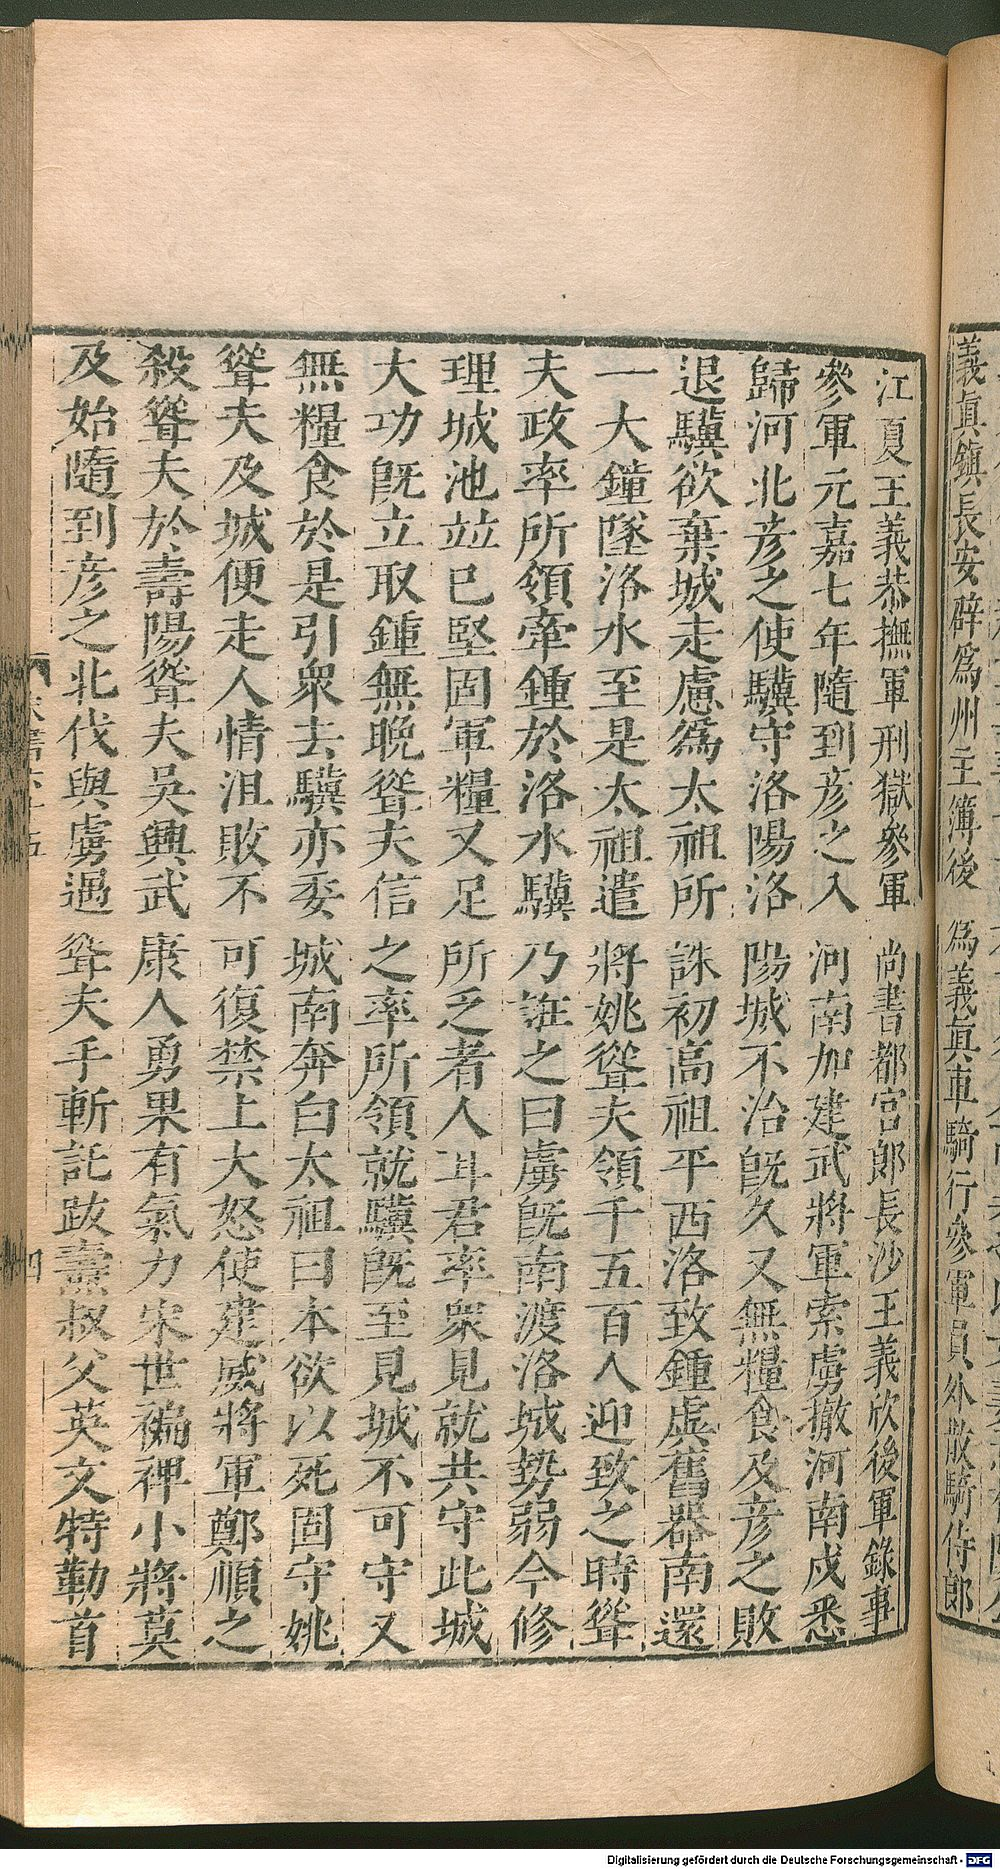 義眞鎮長安辟爲州主簿後爲義眞車騎行參軍員外散騎侍郎
江夏王義恭撫軍刑獄參軍尚書都官郎長沙王義欣後軍錄事
參軍元嘉七年隨到彦之入河南加建武將軍索虜撤河南戍悉
歸河北彦之使驥守洛陽洛陽城不治旣久又無糧食及彦之敗
退驥欲棄城走慮爲太祖所誅初高祖平西洛致鍾虡舊器南還
一大鐘墜洛水至是太祖遣將姚聳夫領千五百人迎致之時聳
夫政率所領牽鍾於洛水驥乃誑之曰虜旣南渡洛城勢弱今修
理城池竝已堅固軍糧又足所乏者人耳君率衆見就共守此城
大功旣立取鍾無晚聳夫信之率所領就驥旣至見城不可守又
無糧食於是引衆去驥亦委城南奔白太祖曰本欲以死固守姚
聳夫及城便走人情沮敗不可復禁上大怒使建威將軍鄭順之
殺聳夫於壽陽聳夫吳興武康人勇果有氣力宋世褊裨小將莫
及始隨到彦之北伐與虜遇聳夫手斬託跋燾叔父英文特勒首
四
Digitalisierung gefördert durch die Deutsche Forschungsgemeinschaft - DFG